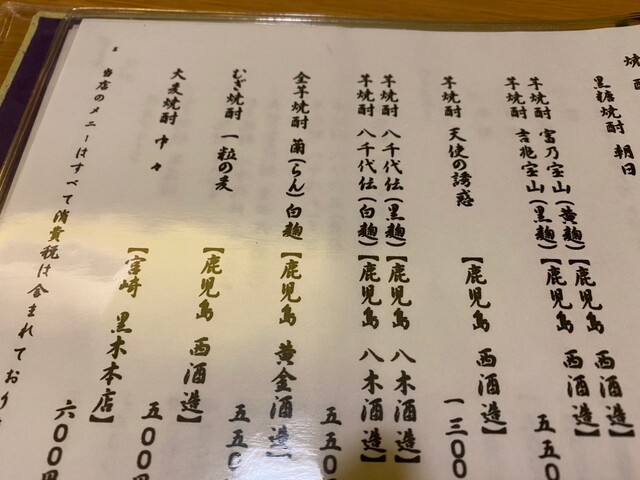 焼酎
黒糖焼酎 朝日
芋焼酎 富乃宝山(黄麹)【鹿児島 西酒造】
芋焼酎 吉兆宝山(黒麹)【鹿児島 西酒造】 五五0
芋焼酎 天使の誘惑 【鹿児島 西酒造】 一三00
芋焼酎 八千代伝(黒麹)【鹿児島 八木酒造】
芋焼酎 八千代伝(白麹)【鹿児島 八木酒造】 五五
全芋焼酎 蘭(らん)白麹【鹿児島 黄金酒造】 五五0
むぎ焼酎 一粒の麦 【鹿児島 西酒造】 五00円
大麦焼酎 中々 【宮崎 黒木本店】 六00円
当店のメニューはすべて消費税は含まれており